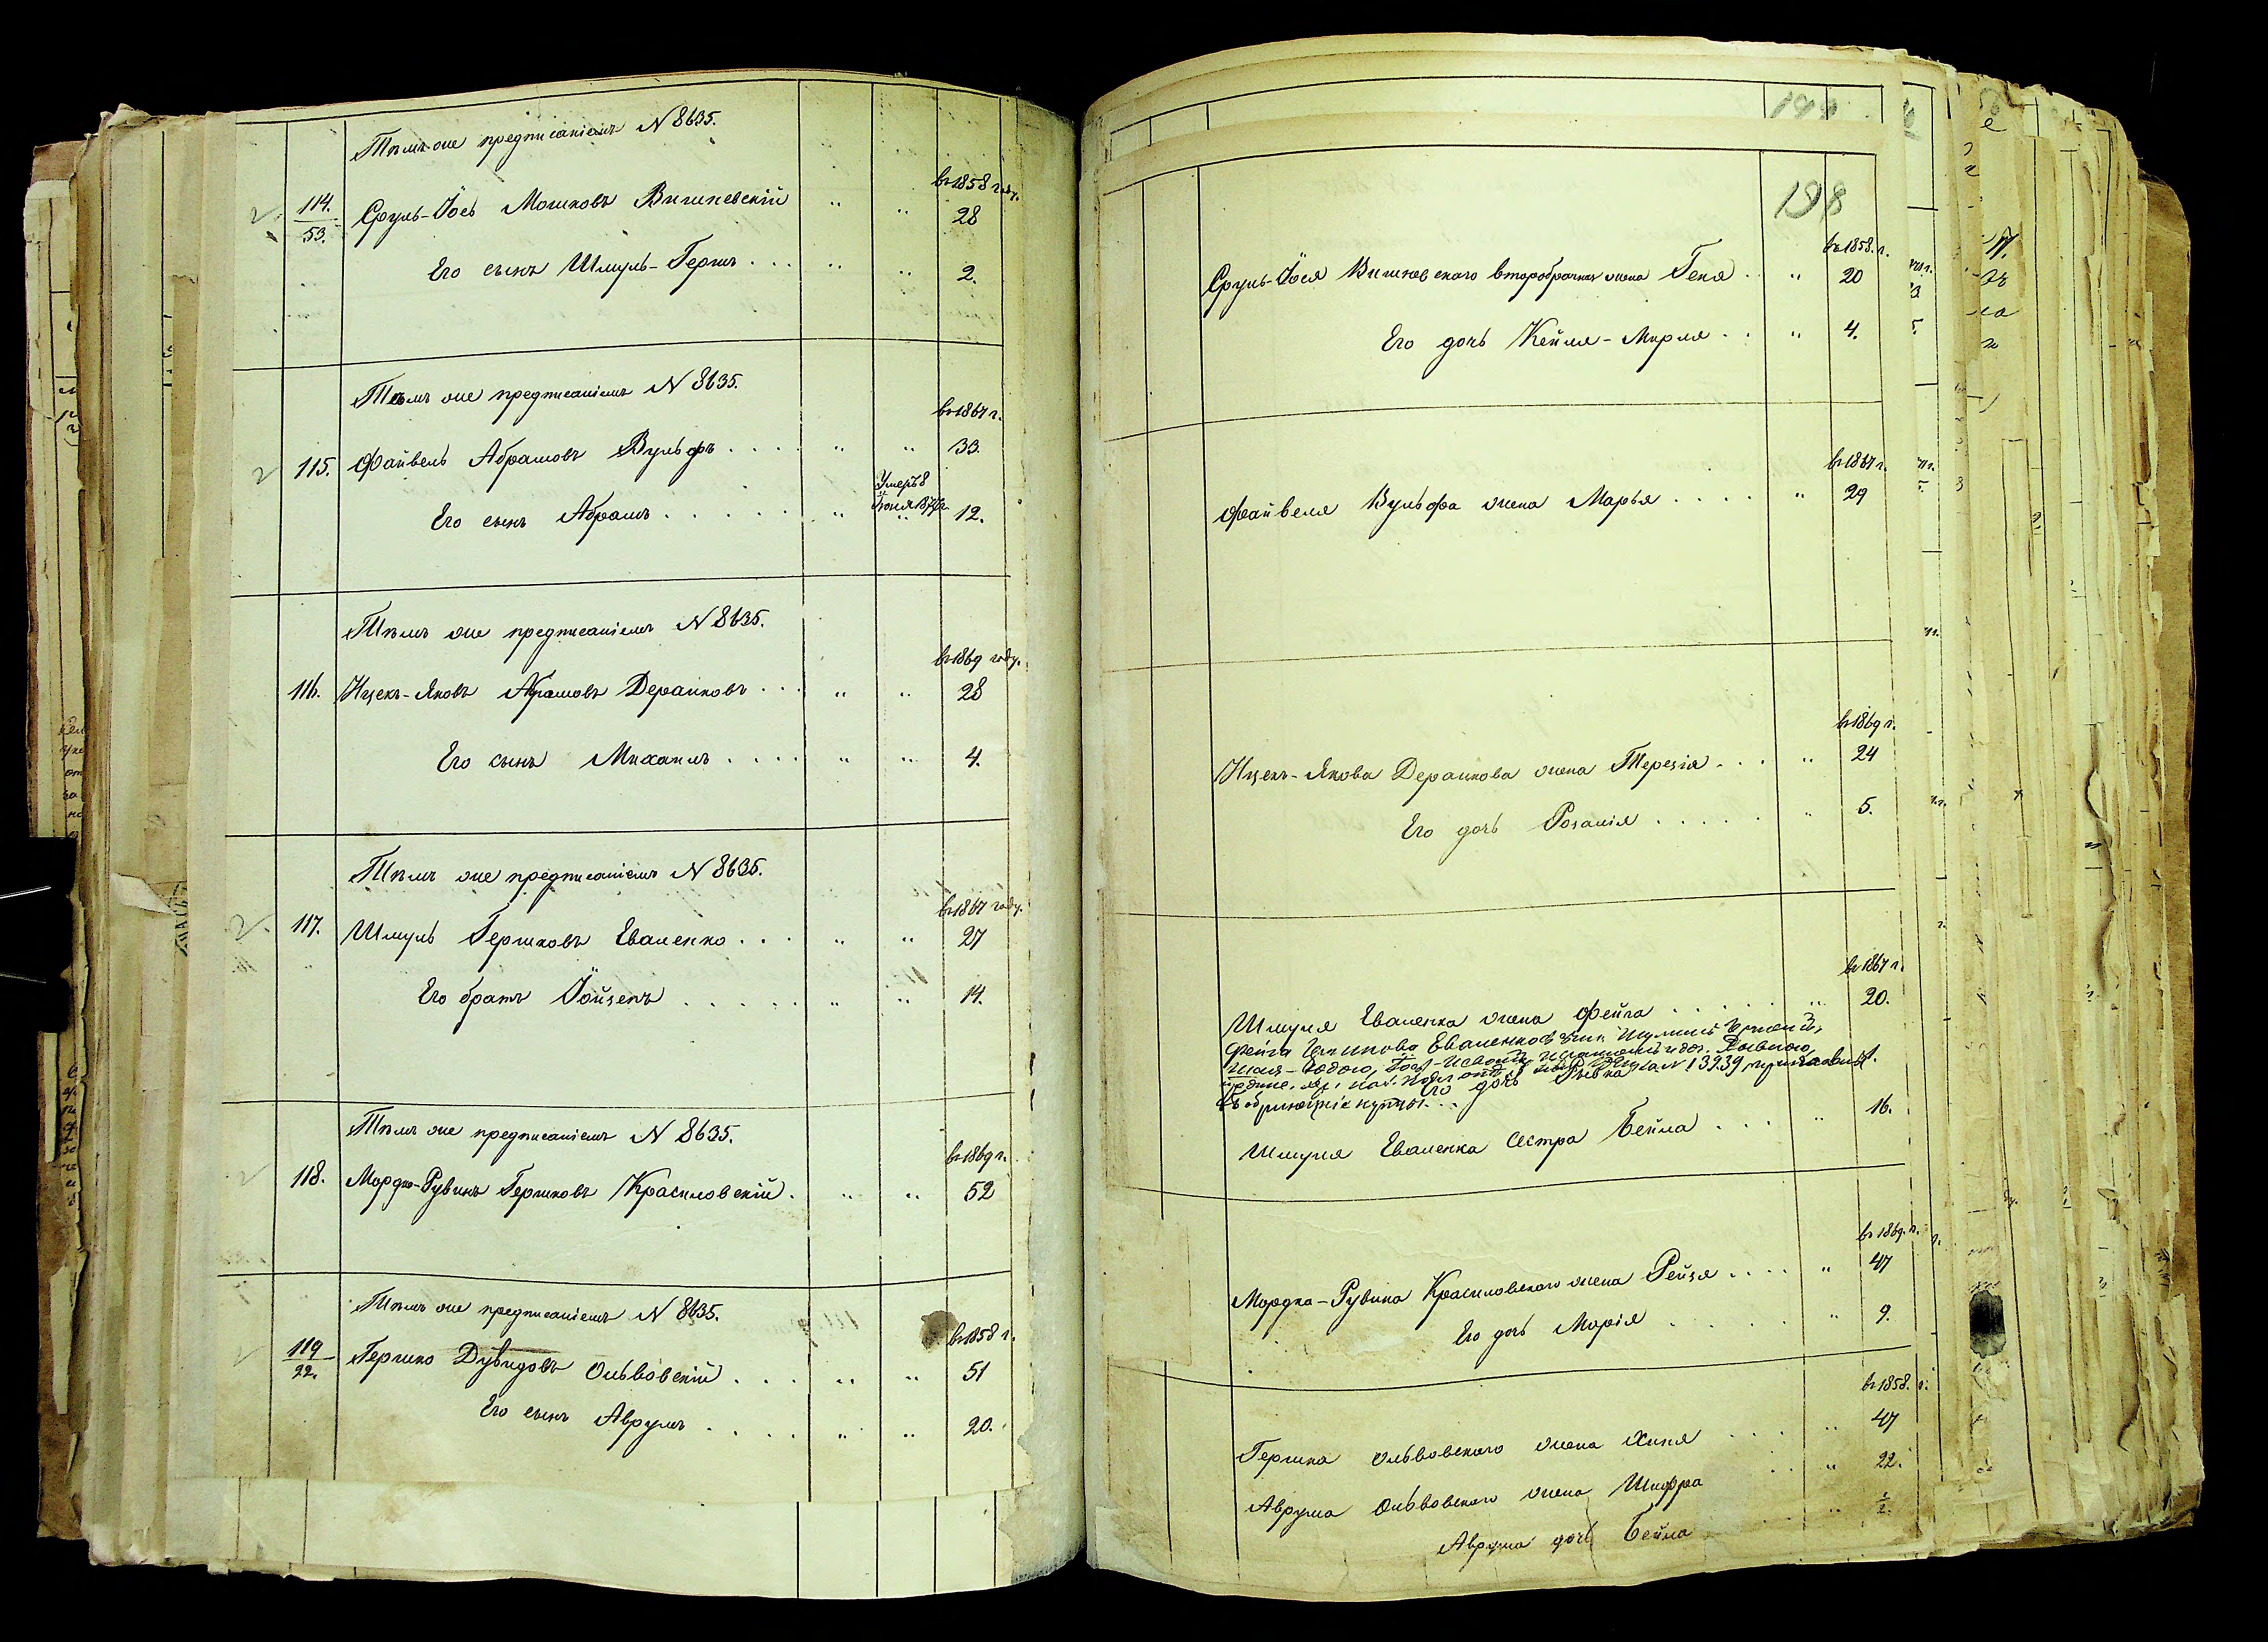 Тѣмъ же предписаніемъ N 8635.
въ 1858 году.
114.
53.
Сруль-Іось Мошковъ Вишневскій 28
Его сынъ Шмуль-Гершъ 2.
Тѣмъ же предписаніемъ N 8635.
въ 1867 г.
115. Файвель Абрамовъ Вульфъ 33.
Умеръ 8
Его сынъ Абрамъ 12.
Тѣмъ же предписаніемъ N 8635.
въ 1869 году.
116. Ицекъ-Яковъ Абрамовъ Деранковъ 28
Его сынъ Михаилъ 4.
Тѣмъ же предписаніемъ N 8635.
въ 1867 году.
117. Шмуль Гершковъ Еваленко 27
Его братъ Іойзепъ 14.
Тѣмъ же предписаніемъ N 8635.
въ 1869 г.
118. Мордко-Рувинъ Гершковъ Красиловскій 52
Тѣмъ же предписаніемъ N 8635.
въ 1858 г.
119
22.
Гершко Дувидовъ Ольвовскій 51
Его сынъ Аврумъ 20.
198
въ 1858. г.
Сруль-Іося Вишневскаго второбрачная жена Геня 20
Его дочь Кейля-Мирля 4.
въ 1867 г.
Файвеля Вульфа жена Марья 29
въ 1869 г.
Ицекъ-Якова Деранкова жена Терезія 24
Его дочь Розалія 5.
въ 1867 г.
Шмуля Еваленка жена Фейга 20.
Фейга Еваленкова
N 13939
Его дочь Рывка 1.
Шмуля Еваленка сестра Бейла 16.
въ 1869. г.
Мордка-Рувина Красиловскаго жена Рейзя 47
Его дочь Марія 9.
въ 1858. г.
Гершка Ольвовскаго жена Хиня 47
Аврума Ольвовскаго жена Шифра 22.
Аврума дочь Бейла ½.